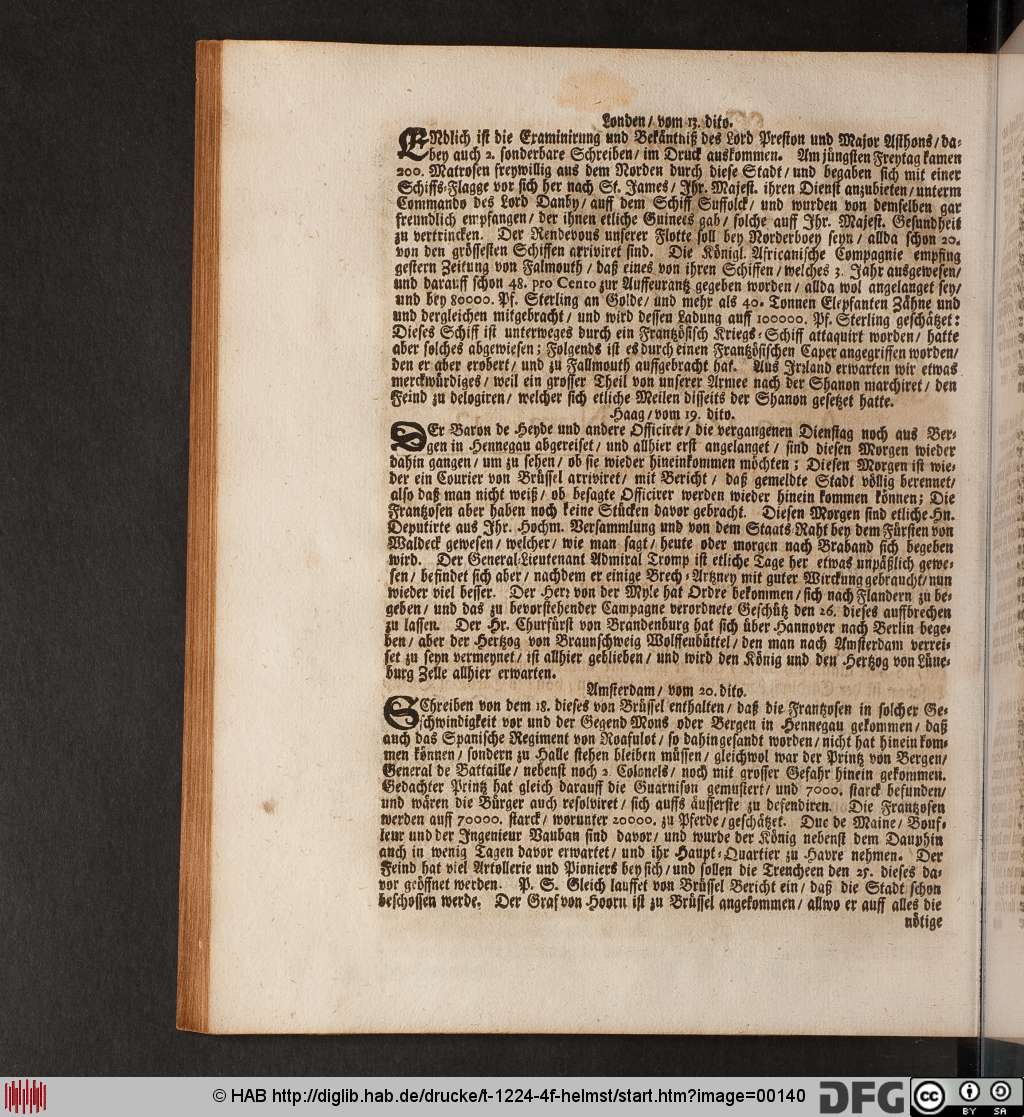 Londen / vom 13. dito.
ENdlich ist die Examinirung und Bekäntniß des Lord Preston und Major Asthons / da-
bey auch 2. sonderbare Schreiben / im Druck auskommen. Am jüngsten Freytag kamen
200. Matrosen freywillig aus dem Norden durch diese Stadt / und begaben sich mit einer
Schiffs-Flagge vor sich her nach St. James / Ihr. Majest. ihren Dienst anzubieten / unterm
Commando des Lord Danby / auff dem Schiff Suffolck / und wurden von demselben gar
freundlich empfangen / der ihnen etliche Guinees gab / solche auff Ihr. Majest. Gesundheit
zu vertrincken. Der Rendevous unserer Flotte soll bey Norderboey seyn / allda schon 20.
von den grössesten Schiffen arriviret sind. Die Königl. Africanische Compagnie empfing
gestern Zeitung von Falmouth / daß eines von ihren Schiffen / welches 3. Jahr ausgewesen /
und darauff schon 48. pro Cento zur Asseurantz gegeben worden / allda wol angelanget sey /
und bey 80000. Pf. Sterling an Golde / und mehr als 40. Tonnen Elepfanten Zähne und
und dergleichen mitgebracht / und wird dessen Ladung auff 100000. Pf. Sterling geschätzet:
Dieses Schiff ist unterweges durch ein Frantzösisch Kriegs-Schiff attaquirt worden / hatte
aber solches abgewiesen; Folgends ist es durch einen Frantzösischen Caper angegriffen worden /
den er aber erobert / und zu Fallmouth auffgebracht hat. Aus Irrland erwarten wir etwas
merckwürdiges / weil ein grosser Theil von unserer Armee nach der Shanon marchiret / den
Feind zu delogiren / welcher sich etliche Meilen disseits der Shanon gesetzet hatte.
Haag / vom 19. dito.
DEr Baron de Heyde und andere Officirer / die vergangenen Dienstag noch aus Ber-
gen in Hennegau abgereiset / und allhier erst angelanget / sind diesen Morgen wieder
dahin gangen / um zu sehen / ob sie wieder hineinkommen möchten; Diesen Morgen ist wie-
der ein Courier von Brüssel arriviret / mit Bericht / daß gemeldte Stadt völlig berennet /
also daß man nicht weiß / ob besagte Officirer werden wieder hinein kommen können; Die
Frantzosen aber haben noch keine Stücken davor gebracht. Diesen Morgen sind etliche Hn.
Deputirte aus Ihr. Hochm. Versammlung und von dem Staats-Raht bey dem Fürsten von
Waldeck gewesen / welcher / wie man sagt / heute oder morgen nach Braband sich begeben
wird. Der General-Lieutenant Admiral Tromp ist etliche Tage her etwas unpäßlich gewe-
sen / befindet sich aber / nachdem er einige Brech-Artzney mit guter Wirckung gebraucht / nun
wieder viel besser. Der Herr von der Myle hat Ordre bekommen / sich nach Flandern zu be-
geben / und das zu bevorstehender Campagne verordnete Geschütz den 26. dieses auffbrechen
zu lassen. Der Hr. Churfürst von Brandenburg hat sich über Hannover nach Berlin bege-
ben / aber der Hertzog von Braunschweig Wolffenbüttel / den man nach Amsterdam verrei-
set zu seyn vermeynet / ist allhier geblieben / und wird den König und den Hertzog von Lüne-
burg Zelle allhier erwarten.
Amsterdam / vom 20. dito.
SChreiben von dem 18. dieses von Brüssel enthalten / daß die Frantzosen in solcher Ge-
schwindigkeit vor und der Gegend Mons oder Bergen in Hennegau gekommen / daß
auch das Spanische Regiment von Noafulot / so dahin gesandt worden / nicht hat hinein kom-
men können / sondern zu Halle stehen bleiben müssen / gleichwol war der Printz von Bergen /
General de Battaille / nebenst noch 2. Colonels / noch mit grosser Gefahr hinein gekommen.
Gedachter Printz hat gleich darauff die Guarnison gemustert / und 7000. starck befunden /
und wären die Bürger auch resolviret / sich auffs äusserste zu defendiren. Die Frantzosen
werden auff 70000. starck / worunter 20000. zu Pferde / geschätzet. Duc de Maine / Bouf-
leur und der Ingenieur Vauban sind davor / und wurde der König nebenst dem Dauphin
auch in wenig Tagen davor erwartet / und ihr Haupt-Quartier zu Havre nehmen. Der
Feind hat viel Artollerie und Pioniers bey sich / und sollen die Trencheen den 25. dieses da-
vor geöffnet werden. P. S. Gleich lauffet von Brüssel Bericht ein / daß die Stadt schon
beschossen werde. Der Graf von Hoorn ist zu Brüssel angekommen / allwo er auff alles die
nötige
© HAB http://diglib.hab.de/drucke/t-1224-4f-helmst/start.htm?image=00140
DFG
cc
BY SA